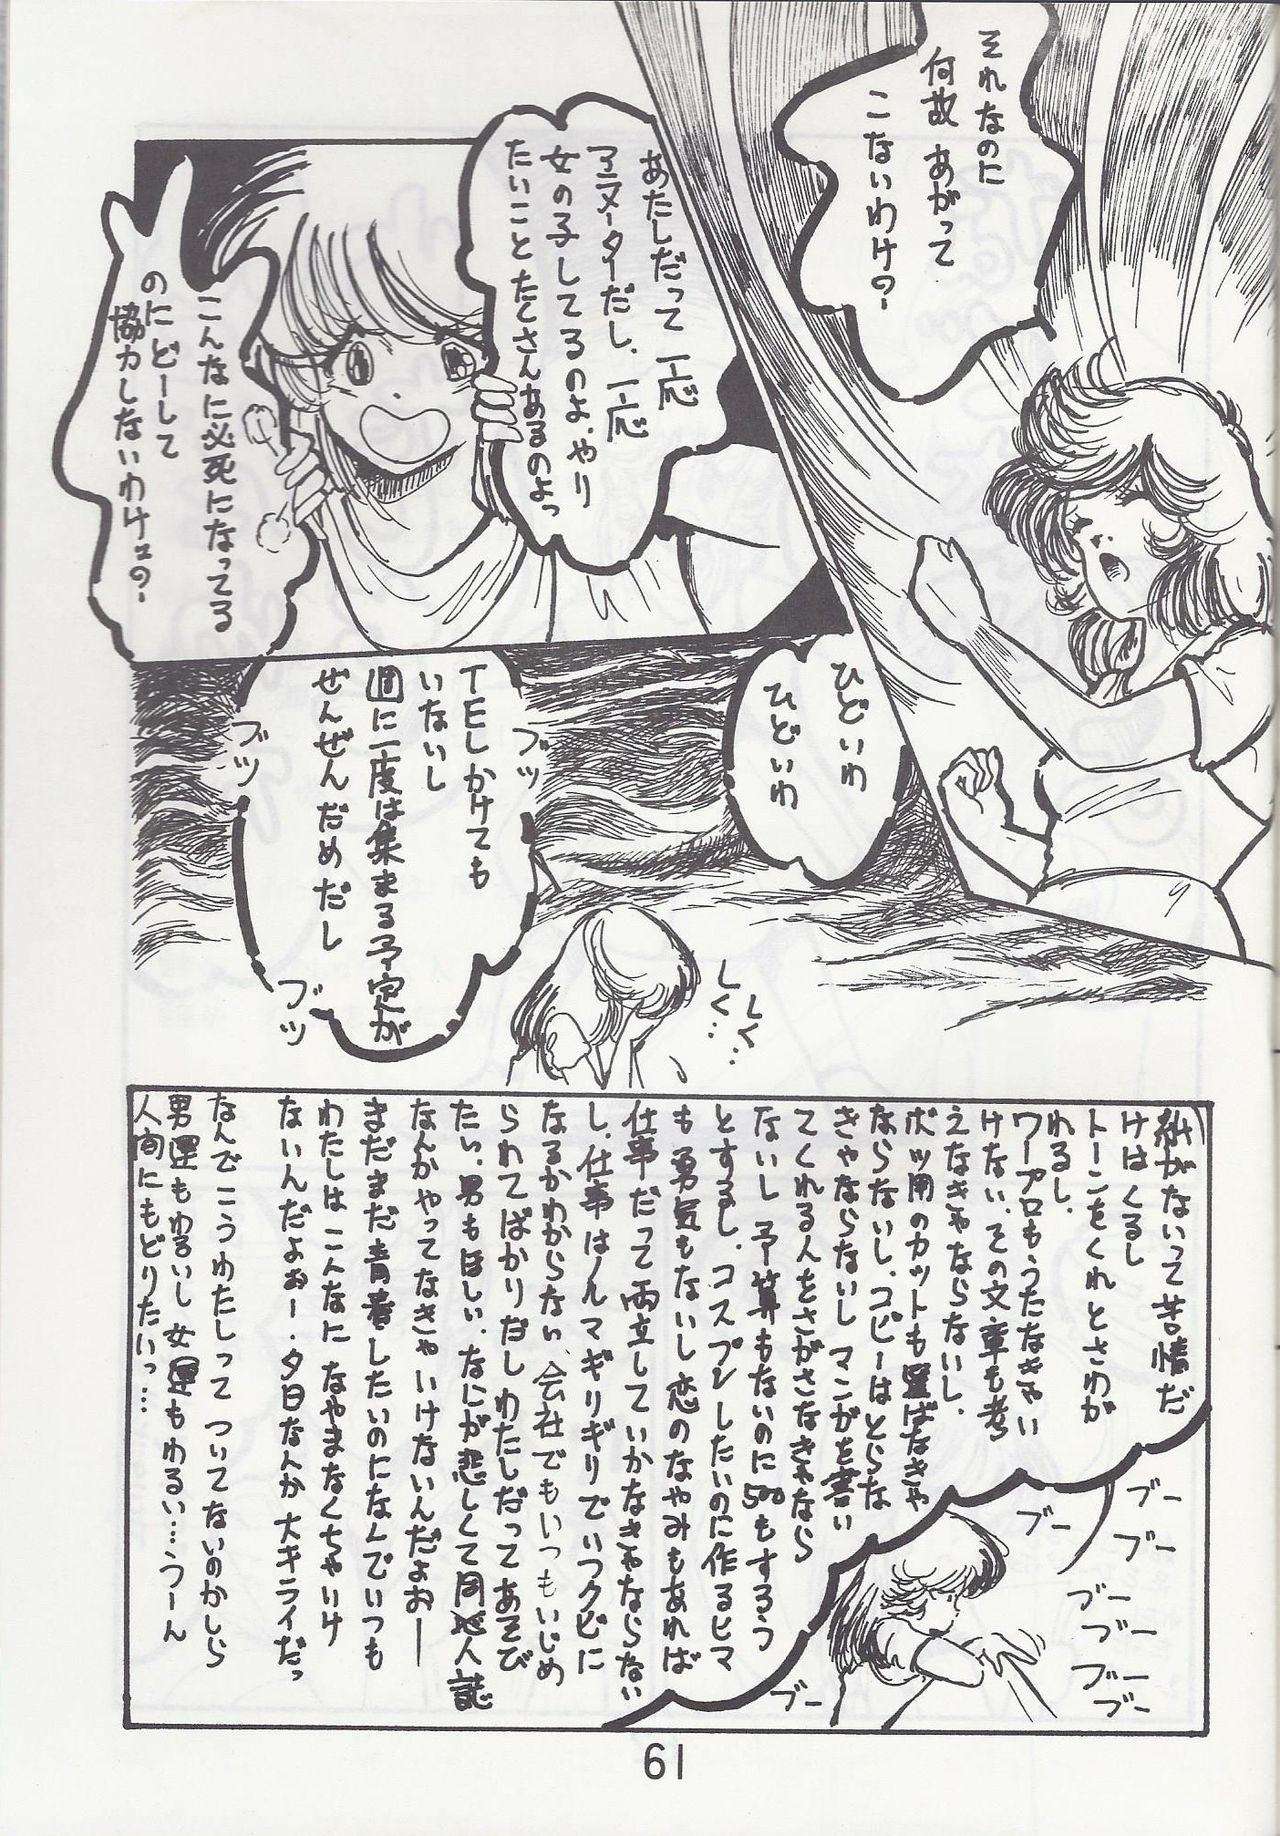 それなのに
何故 あがって
こないわけ?
あたしだって 一応
アニメーターだし、一応
女の子してるのよ、やり
たいこと たくさんあるのよっ
こんなに必死になってる
のにどーして
協力しないわけェ?
ひどいわ
ひどいわ
TELかけても
いないし
週に一度は集まる予定が
ぜんぜんだめだし
ブツ
ブツ
ブツ
しく…
しく…
紙がないって苦情だ
けは くるし
トーンをくれとさわが
れるし、
ワープロもうたなきゃい
けない、その文章も考
えなきゃならないし、
ボツ用のカットも選ばなきゃ
ならないし、コピーはとらな
きゃならないし マンガを書い
てくれる人をさがさなきゃなら
ないし 予算もないのに500もするう
とするし、コスプレしたいのに作るヒマ
も 勇気もないし恋のなやみもあれば
仕事だって両立していかなきゃならない
し、仕事はノルマギリギリでいつクビに
なるかわからない、会社でもいつもいじめ
られてばかりだし わたしだってあそび
たい、男もほしい、なにが悲しくて同人誌
なんかやってなきゃいけないんだよおー
まだまだ青春したいのになんでいつも
わたしは こんなに なやまなくちゃいけ
ないんだよぉー、夕日なんか大キライだっ
なんで こうわたしって ついてないのかしら
男運もわるいし 女運もわるい…うーん
人間にもどりたいっ…
ブー
ブー
ブー
ブー
ブー
ブー
ブー
ブー
61